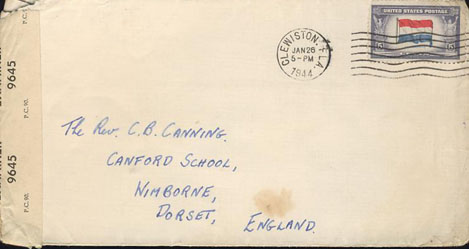 UNITED STATES POSTAGE
CLEWISTON, FLA.
JAN 26
5-PM
1944
P.C.
9645
P.C. 90.
9645
P.C. 90.
The Rev. C. B. CANNING.
CANFORD SCHOOL,
WIMBORNE,
DORSET,
ENGLAND.